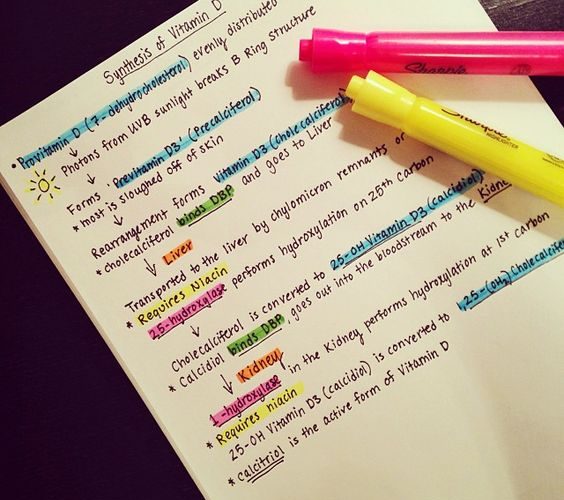 Synthesis of Vitamin D
• Provitamin D (7-dehydrocholesterol) evenly distributed
Photons from UVB sunlight breaks B Ring structure
Forms previtamin D3' (Precalciferol)
* most is sloughed off of skin
Rearrangement forms vitamin D3 (Cholecalciferol)
* cholecalciferol binds DBP and goes to Liver
Liver
Transported to the liver by chylomicron remnants or
* Requires Niacin
25-hydroxylase performs hydroxylation on 25th Carbon
Cholecalciferol is converted to 25-OH Vitamin D3 (calcidiol)
* Calcidiol binds DBP, goes out into the bloodstream to the Kidney
Kidney
1-hydroxylase in the kidney performs hydroxylation at 1st carbon
* Requires niacin
25-OH Vitamin D3 (calcidiol) is converted to 1,25-(OH2) Cholecalcife
* Calcitriol is the active form of Vitamin D
Sharpie
Sharpie
HIGHLIGHTER